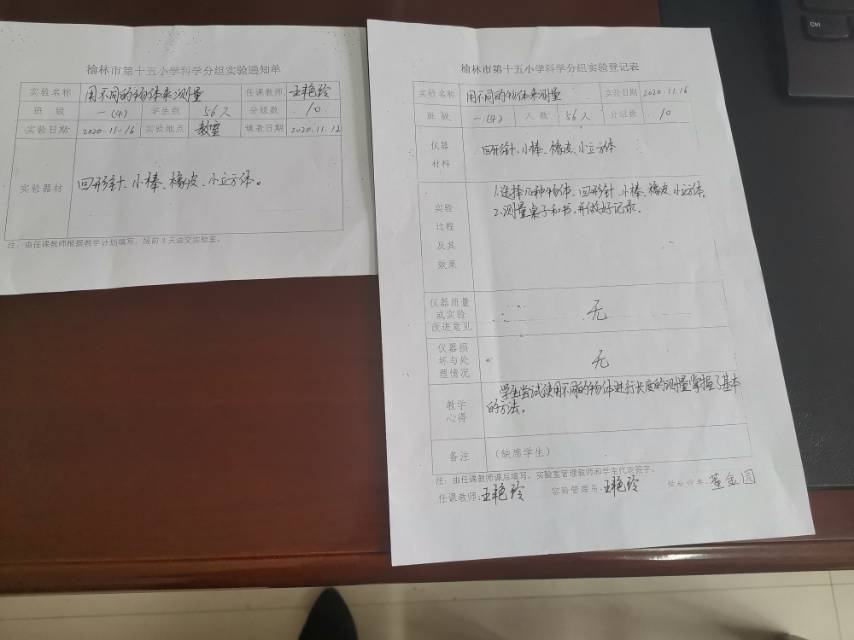 榆林市第十五小学科学分组实验通知单
实验名称 用不同的物体来测量 任课教师 王艳玲
班 级 一(4) 学生数 56人 分组数 10
实验日期 2020.11.16 实验地点 教室 填表日期 2020.11.12
实验器材 回形针、小棒、橡皮、小立方体。
注：由任课教师根据教学计划填写，提前3天送交实验室。
榆林市第十五小学科学分组实验登记表
实验名称 用不同的物体来测量 实验日期 2020.11.16
班 级 一(4) 人 数 56人 分组数 10
仪器
材料
回形针、小棒、橡皮、小立方体
实验
过程
及其
效果
1.选择几种物体、回形针、小棒、橡皮、小立方体。
2.测量桌子和书,并做好记录。
仪器质量
或实验
改进意见
无
仪器损
坏与处
理情况
无
教学
心得
学生尝试使用不同的物体进行长度的测量掌握了基本
的方法。
备注 (缺席学生)
注：由任课教师课后填写，实验室管理教师和学生代表签字。
任课教师:王艳玲 实验管理员:王艳玲 学生代表: